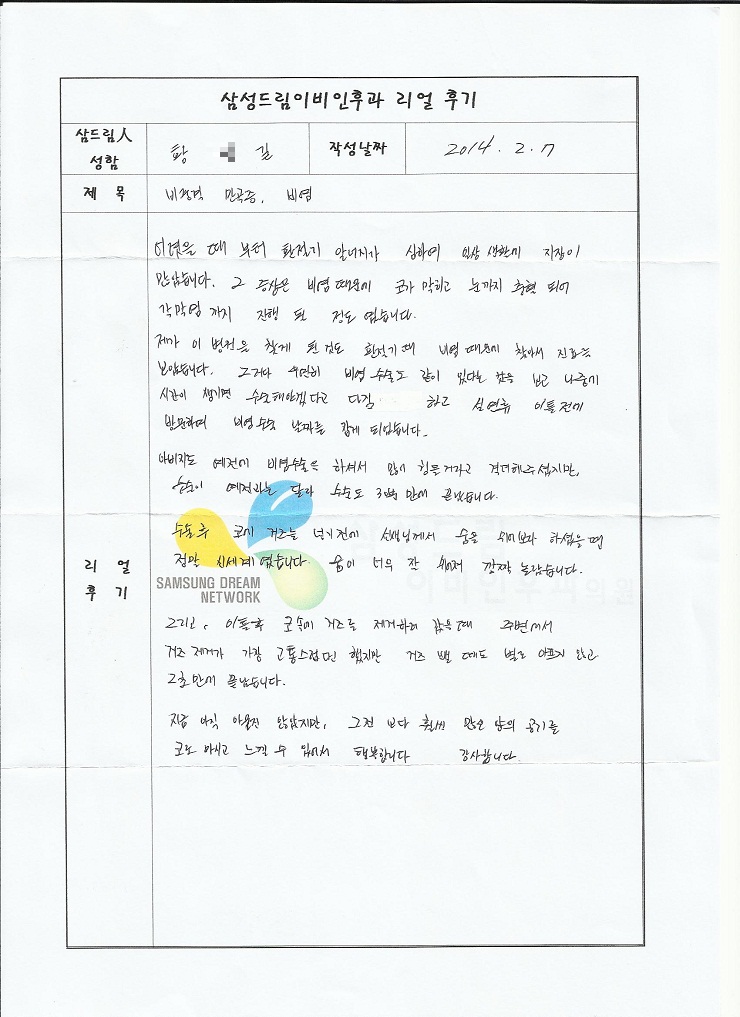 삼성드림이비인후과 리얼 후기
삼드림人
성함
황 길
작성날짜
2014. 2. 7
제 목
비중격 만곡증, 비염
어렸을 때 부터 환절기 알레지가 심하여 일상 생활에 지장이
많았습니다. 그 증상은 비염때문에 코가 막히고 눈까지 충혈 되어
각막염 까지 진행 된 정도 였습니다.
제가 이 병원을 찾게 된것도 환절기때 비염 때문에 찾아서 진료를
보았습니다. 그러다 우연히 비염수술도 같이 있다는 것을 보고 나중에
시간이 생기면 수술해야겠다고 다짐 하고 실연휴 이틀전에
방문하여 비염수술 날짜를 잡게 되었습니다.
아버지도 예전에 비염수술을 하셔서 많이 힘들거라고 걱정해주셨지만,
수술이 예전과는 달라 수술도 30분 만에 끝났습니다.
수술후 코에 거즈를 넣기전에 선생님께서 숨을 쉬어보라 하셨을때
정말 신세계였습니다. 숨이 너무 잘 쉬어져 깜짝 놀랐습니다.
리 얼
후 기
SAMSUNG DREAM
NETWORK
이비인후과의원
그리고, 이틀후 코속에 거즈를 제거하러 갔을때 주변에서
거즈 제거가 가장 고통스럽다고 했지만 거즈 뺄 때도 별로 아프지 않고
2초만에 끝났습니다.
지금 아직 아물진 않았지만, 그전 보다 훨씬 많은 양의 공기를
코로 마시고 느낄 수 있어서 행복합니다 감사합니다.